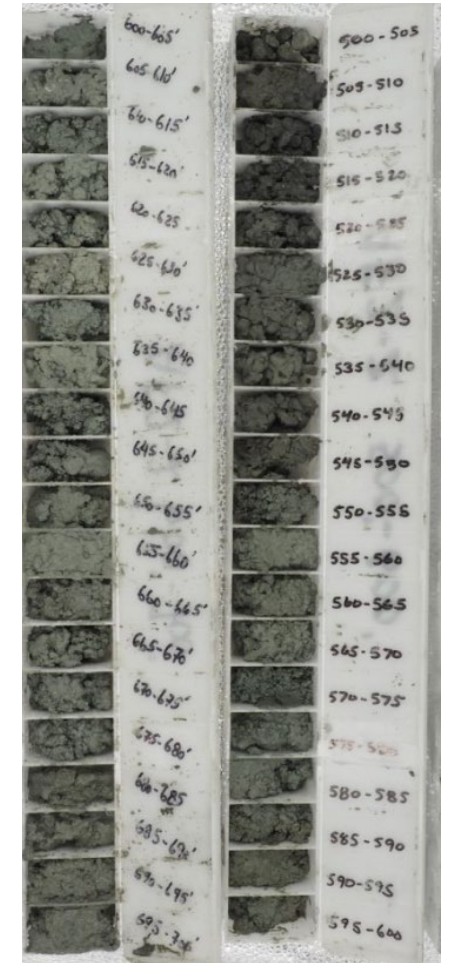 600-605'
605-610'
610-615'
615-620'
620-625
625-630'
630-635'
635-640
640-645
645-650'
650-655'
655-660'
660-665'
665-670'
670-675'
675-680'
680-685
685-690'
690-695'
695-700'
500-505
505-510
510-515
515-520
520-525
525-530
530-535
535-540
540-545
545-550
550-555
555-560
560-565
565-570
570-575
575-580
580-585
585-590
590-595
595-600